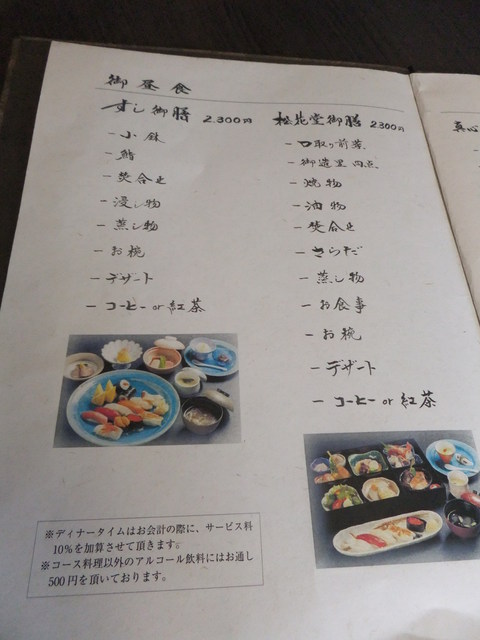 御昼食
すし御膳 2.300円
一小鉢
一鮨
一焚合せ
一浸し物
一蒸し物
一お椀
一デザート
一コーヒー or 紅茶
松花堂御膳 2300円
一口取り前菜
一御造里 四点
一焼物
一油物
一焚合せ
一さらだ
一蒸し物
一お食事
一お椀
一デザート
一コーヒー or 紅茶
真心
※ディナータイムはお会計の際に、サービス料
10%を加算させて頂きます。
※コース料理以外のアルコール飲料にはお通し
500円を頂いております。